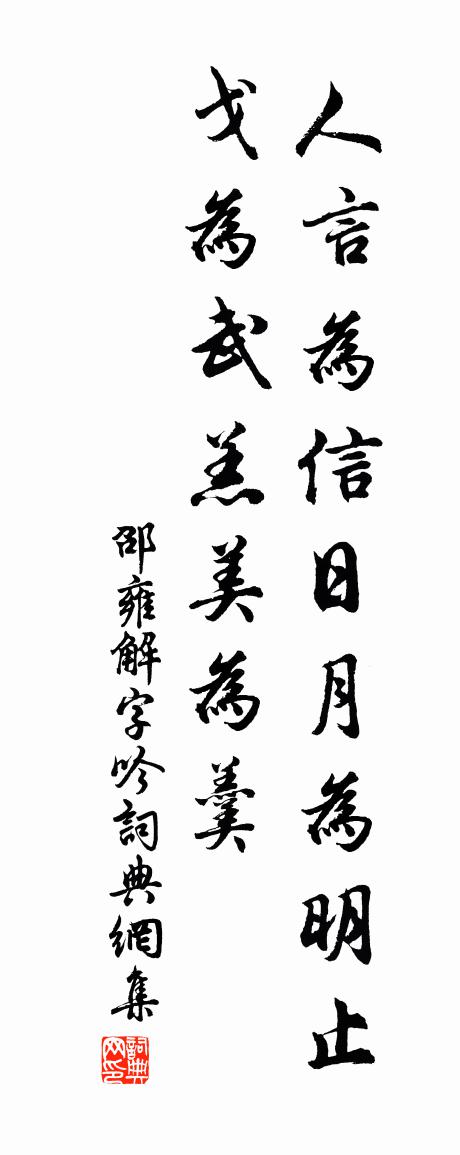 人言為信日月為明止
戈為武羔美為羹
邵雍解字吟詞典網集
詞典網印